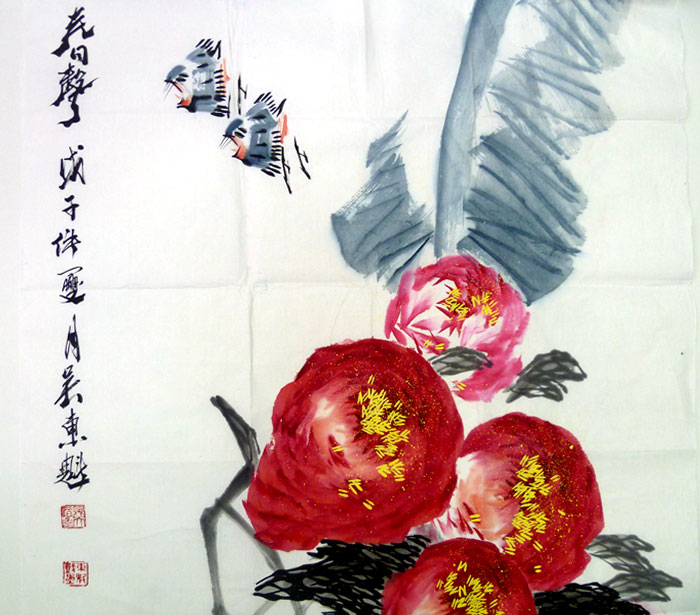 春聲 戊子仲夏月吴東魁